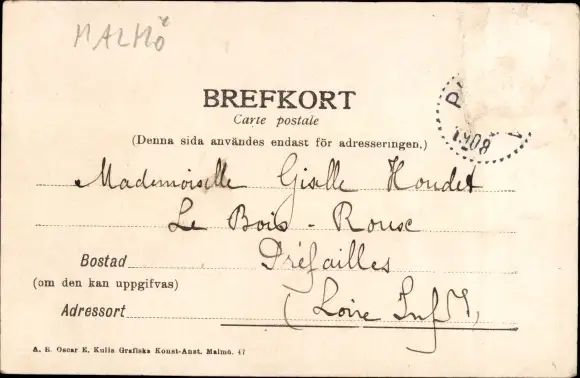 MALMÖ
BREFKORT
Carte postale
(Denna sida användes endast för adresseringen.)
1908
Mademoiselle Giselle Houdet
Le Bois-Rouse
Bostad Préfailles
(om den kan uppgifvas)
Adressort (Loire Infre)
A. B. Oscar E. Kulls Grafiska Konst-Anst. Malmö. 47